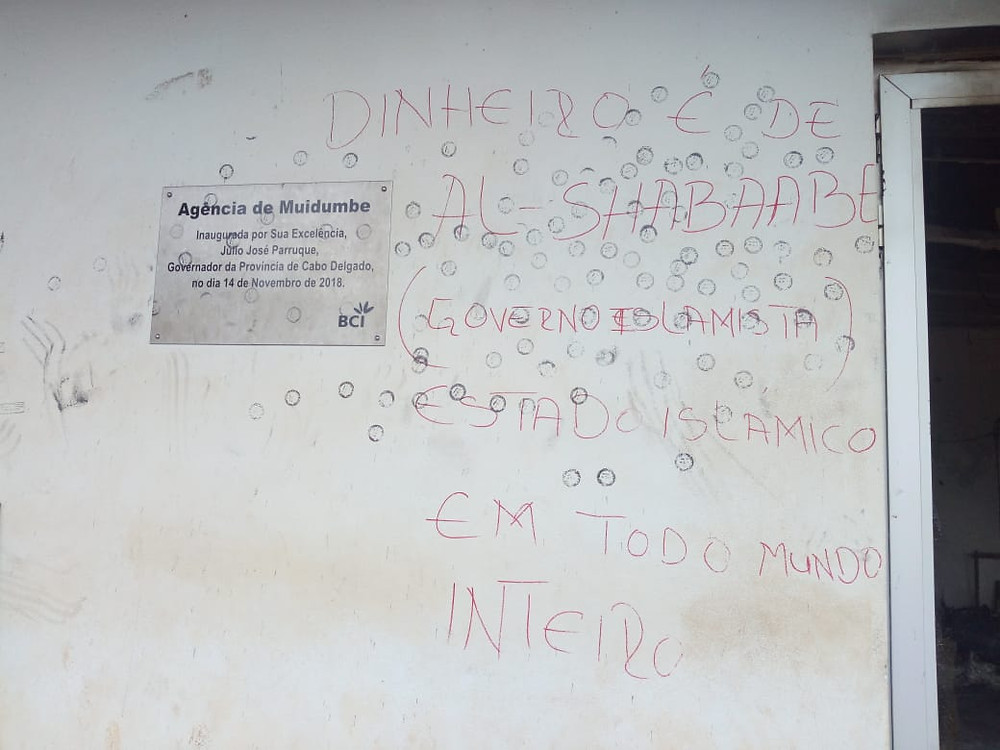 Agência de Muidumbe
Inaugurada por Sua Excelência,
Júlio José Parruque,
Governador da Província de Cabo Delgado,
no dia 14 de Novembro de 2018.
BCI
DINHEIRO É DE
AL-SHABAABE
(GOVERNO ISLAMISTA)
ESTADO ISLAMICO
EM TODO MUNDO
INTEIRO